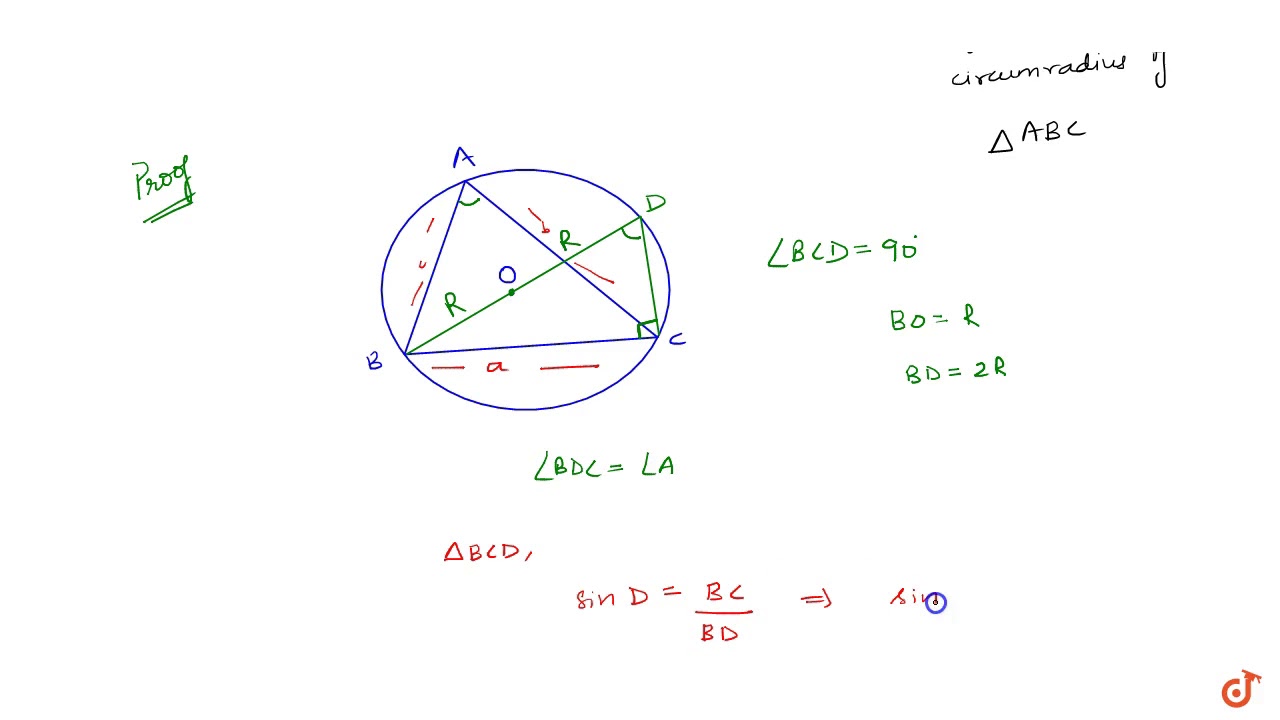 circumradius of
△ ABC
Proof
A
D
b
R
∠BCD = 90°
O
R
BO = R
C
B
a
BD = 2R
∠BDC = ∠A
△BCD,
sin D = BC/BD ⇒ sin